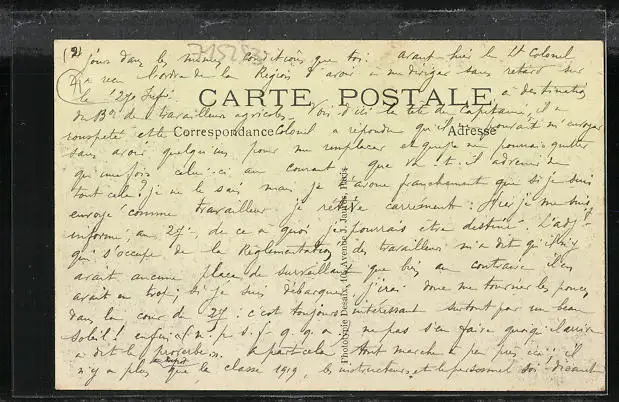 (2)
jours dans les mêmes conditions que toi. avant hier le Lt Colonel
a reçu l'ordre de la Région d'avoir à me diriger sans retard sur
le 27e Inf. à destination
CARTE POSTALE
du Bon de travailleurs agricoles. Vois d'ici la tête du Capitaine, il a
rouspété et le Colonel a répondu qu'il ne pouvait m'envoyer
Correspondance Adresse
sans avoir quelqu'un pour me remplacer et que je ne pourrais quitter
qu'une fois celui-ci au courant. que va-t-il advenir de
tout cela? je ne le sais mais je t'avoue franchement que si je suis
envoyé comme travailleur je rétive carrément: Hier je me suis
informé, au 27e de ce à quoi je pourrais être destiné. L'adjt
qui s'occupe de la Réglementation des travailleurs m'a dit qu'il n'y
avait aucune place de surveillant que bien au contraire il en
avait en trop; si je suis débarqué j'irai donc me tourner les pouces
dans la cour du 27e: c'est toujours intéressant surtout par un beau
soleil! enfin (n. p. s. f. q. q. a.) ne pas s'en faire quoiqu'il arrive
a dit le proverbe. à part cela tout marche à peu près ici: il
au dépôt
n'y a plus que la classe 1919, les instructeurs et le personnel soi-disant
Phototypie Desaix, Avenue J. Jaurès, Paris